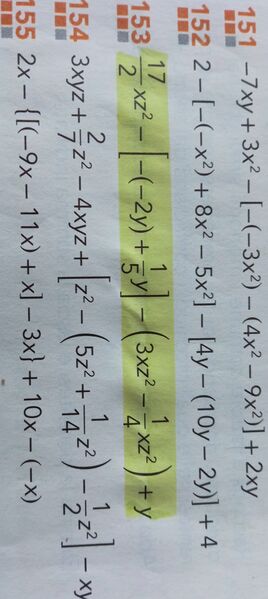 151 −7xy + 3x² − [−(−3x²) − (4x² − 9x²)] + 2xy
152 2 − [−(−x²) + 8x² − 5x²] − [4y − (10y − 2y)] + 4
153 17/2 xz² − [−(−2y) + 1/5 y] − (3xz² − 1/4 xz²) + y
154 3xyz + 2/7 z² − 4xyz + [z² − (5z² + 1/14 z²) − 1/2 z²] − xy
155 2x − {[(−9x − 11x) + x] − 3x} + 10x − (−x)